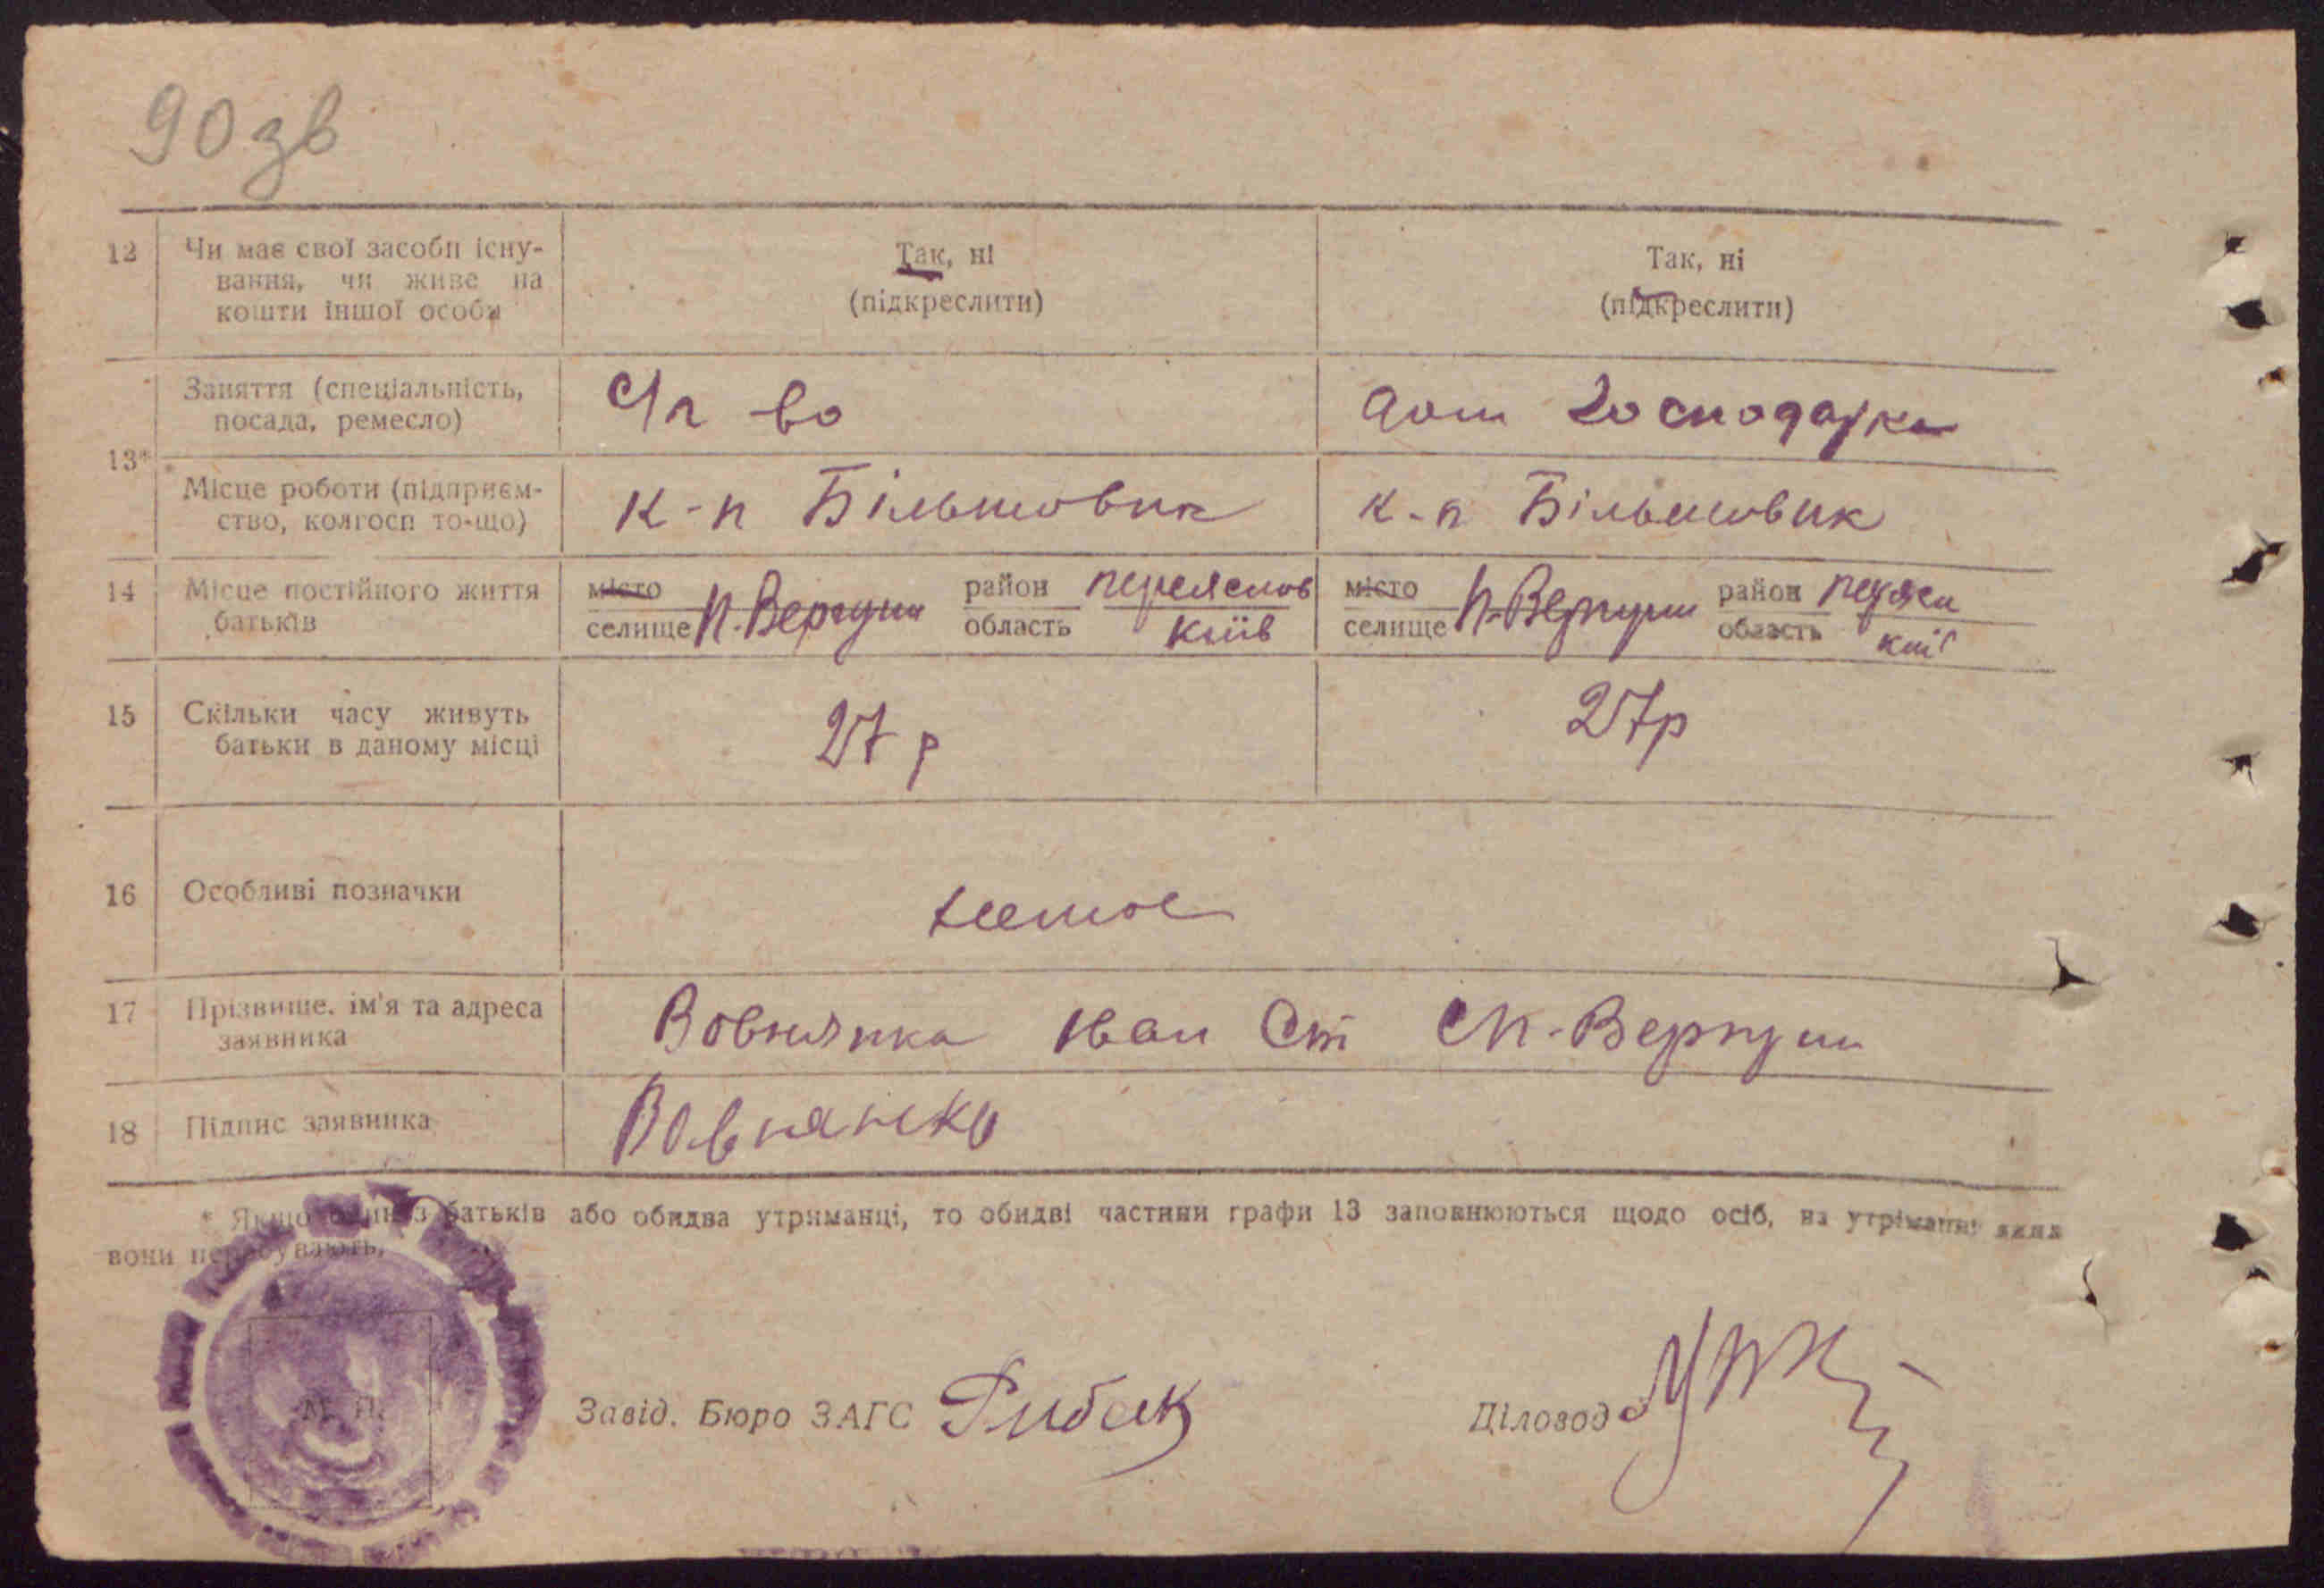 90 зв
12 Чи має свої засоби існу- Так, ні Так, ні
вання, чи живе на
кошти іншої особи (підкреслити) (підкреслити)
Заняття (спеціальність, дом господарка
посада, ремесло)
13*
Місце роботи (підприєм- к-п Більшовик к-п Більшовик
ство, колгосп то-що)
14 Місце постійного життя місто п-Вергуни район переяслов місто п-Вергуни район
батьків селище область Київ селище область
15 Скільки часу живуть 27 р 27 р
батьки в даному місці
16 Особливі позначки
17 Прізвище, ім'я та адреса Вовнянка Іван Ст
заявника
18 Підпис заявника Вовнянко
* Якщо один з батьків або обидва утриманці, то обидві частини графи 13 заповнюються щодо осіб, на утріманні яких
вони перебувають.
М. П.
Завід. Бюро ЗАГС Рибак Діловод